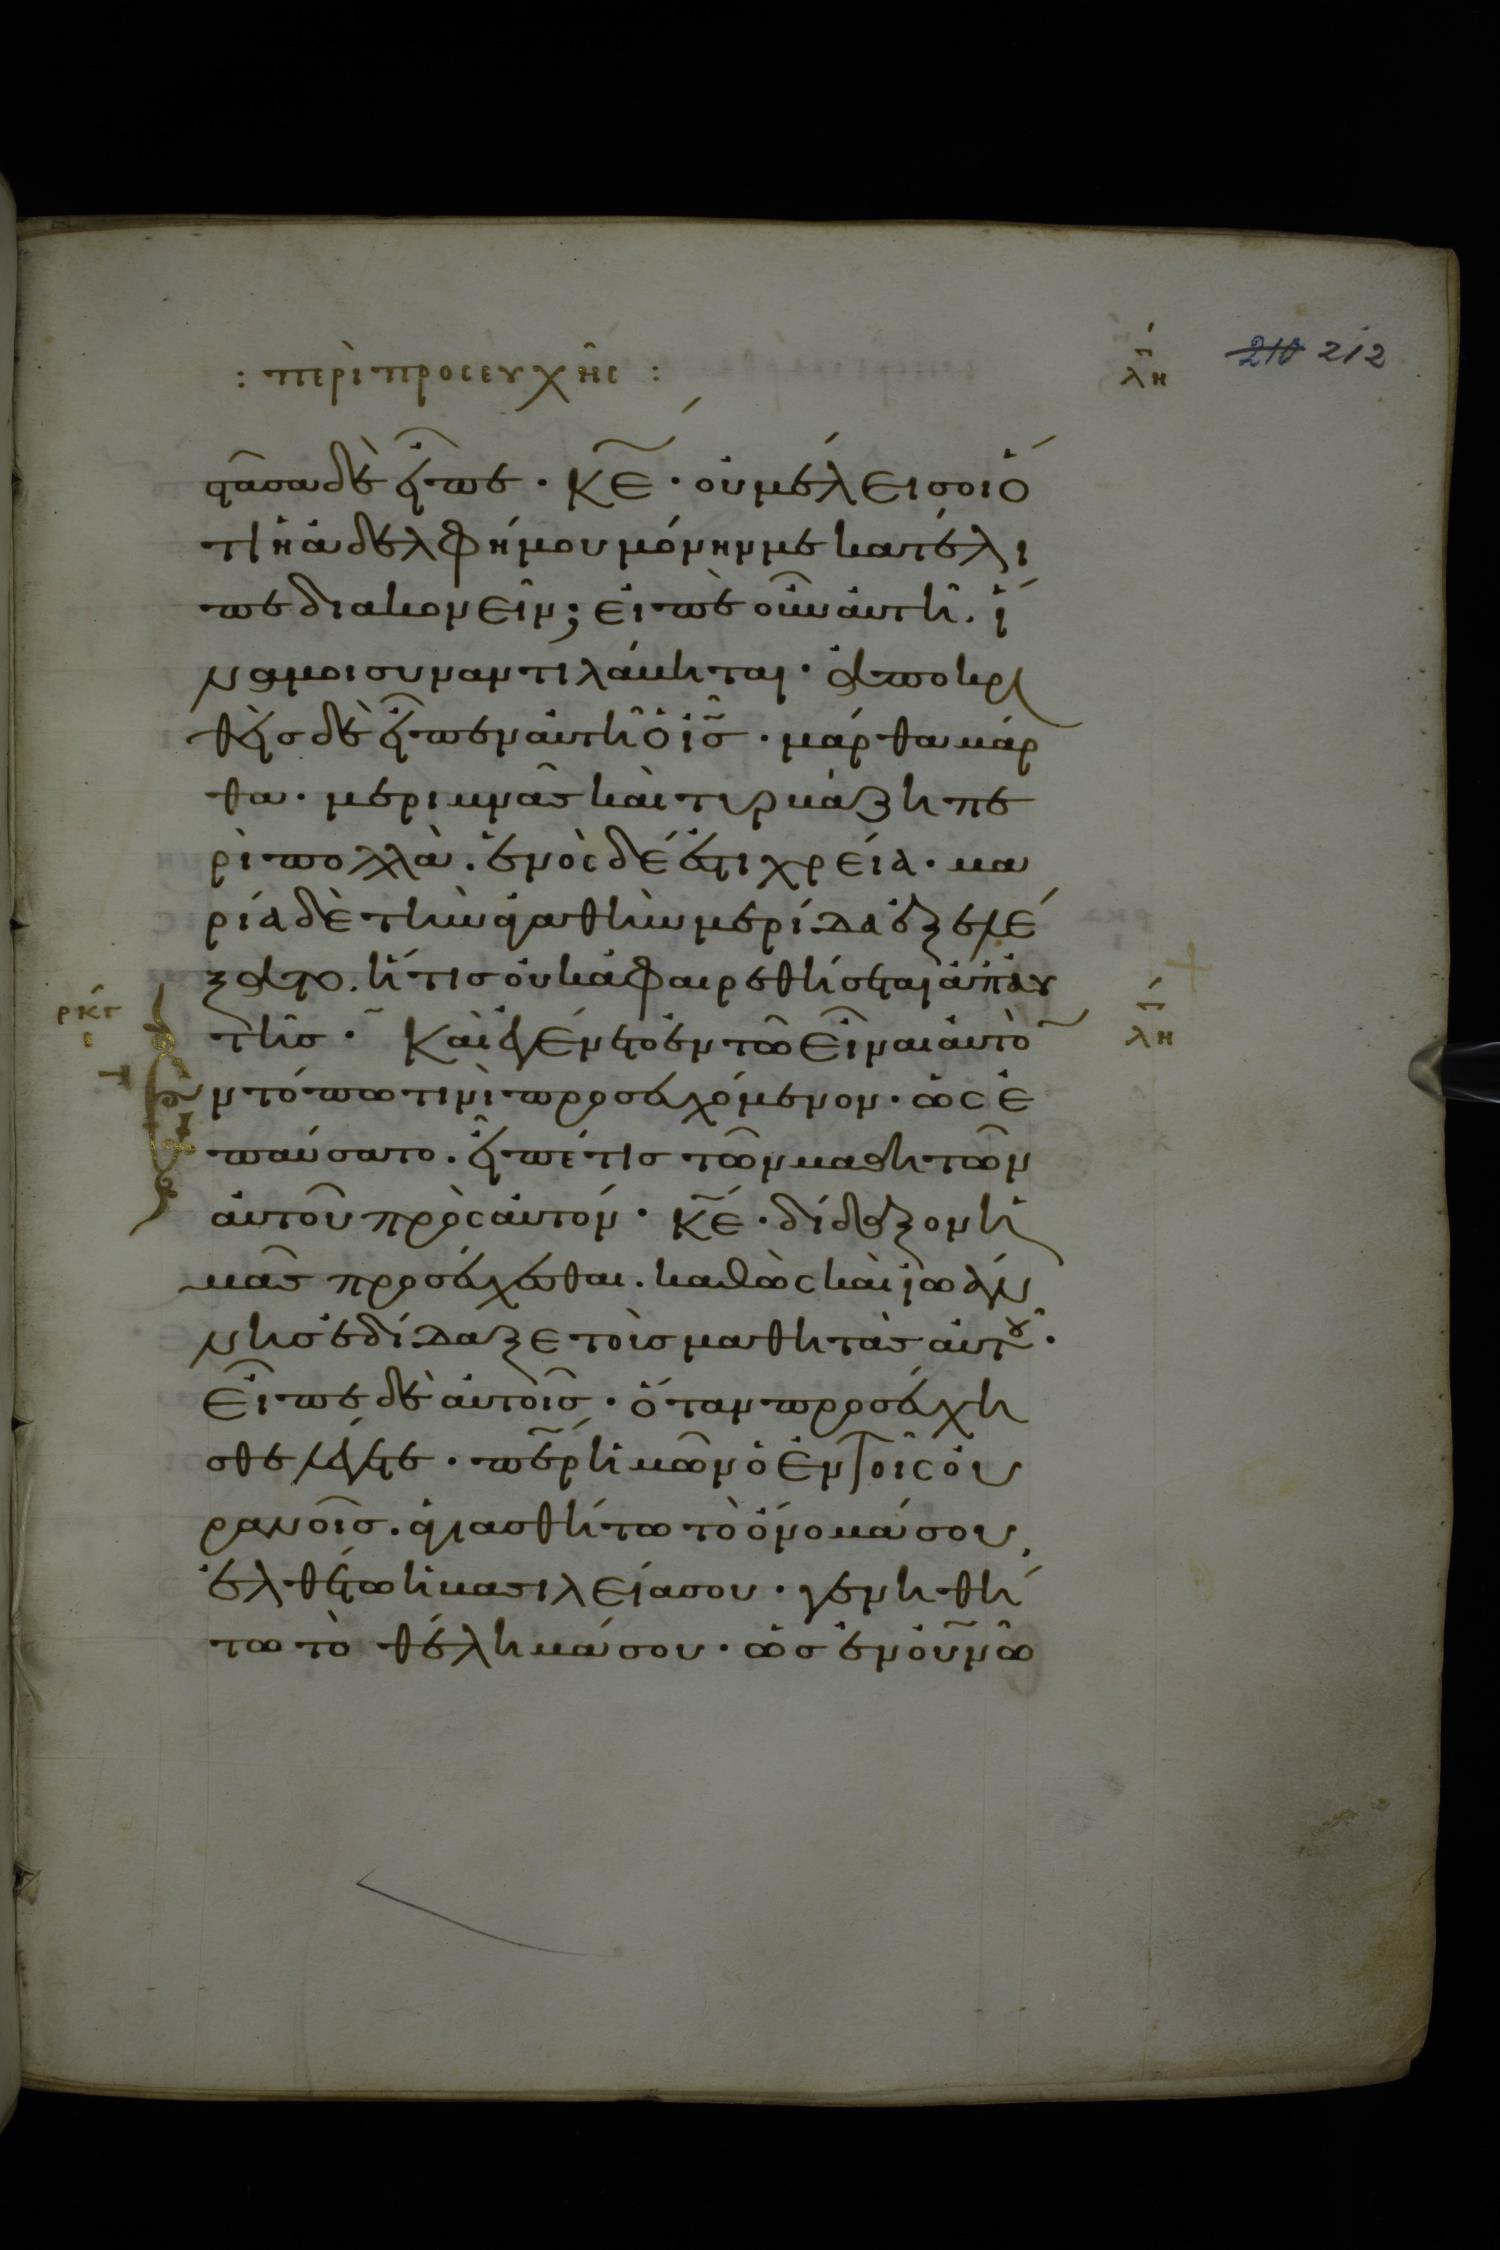 : περὶ προσευχῆς :
λη
210 212
στᾶσα δὲ εἶπε · κε · οὐ μέλει σοι ὅ
τι ἡ ἀδελφή μου μόνην με κατέλι
πε διακονεῖν; εἰπὲ οὖν αὐτῆ · ἵ
να μοι συναντιλάβηται · ἀποκρι
θεὶς δὲ εἶπεν αὐτῆ ὁ ις · μάρθα μάρ
θα · μεριμνᾶς καὶ τυρβάζη πε
ρὶ πολλὰ · ἑνὸς δέ ἐστι χρεία · μα
ρία δὲ τὴν ἀγαθὴν μερίδα ἐξελέ
ξατο · ἥτις οὐκ ἀφαιρεθήσεται ἀπ αυ
τῆς · Καὶ ἐγένετο ἐν τῶ εἶναι αὐτὸν ἐ
ν τόπω τινὶ προσευχόμενον · ὡς ἐ
παύσατο · εἶπέ τις τῶν μαθητῶν
αὐτοῦ πρὸς αὐτόν · κε · δίδαξον ἡ
μᾶς προσεύχεσθαι · καθὼς καὶ ἰωάν
νης ἐδίδαξε τοὺς μαθητὰς αὐτοῦ ·
εἶπε δὲ αὐτοῖς · ὅταν προσεύχη
σθε λέγετε · περ ἡμῶν ὁ ἐν τοῖς οὐ
ρανοῖς · ἁγιασθήτω τὸ ὄνομά σου,
ἐλθέτω ἡ βασιλεία σου · γενηθή
τω τὸ θέλημά σου · ὡς ἐν οὐνῶ
ρκγ
ι
λη